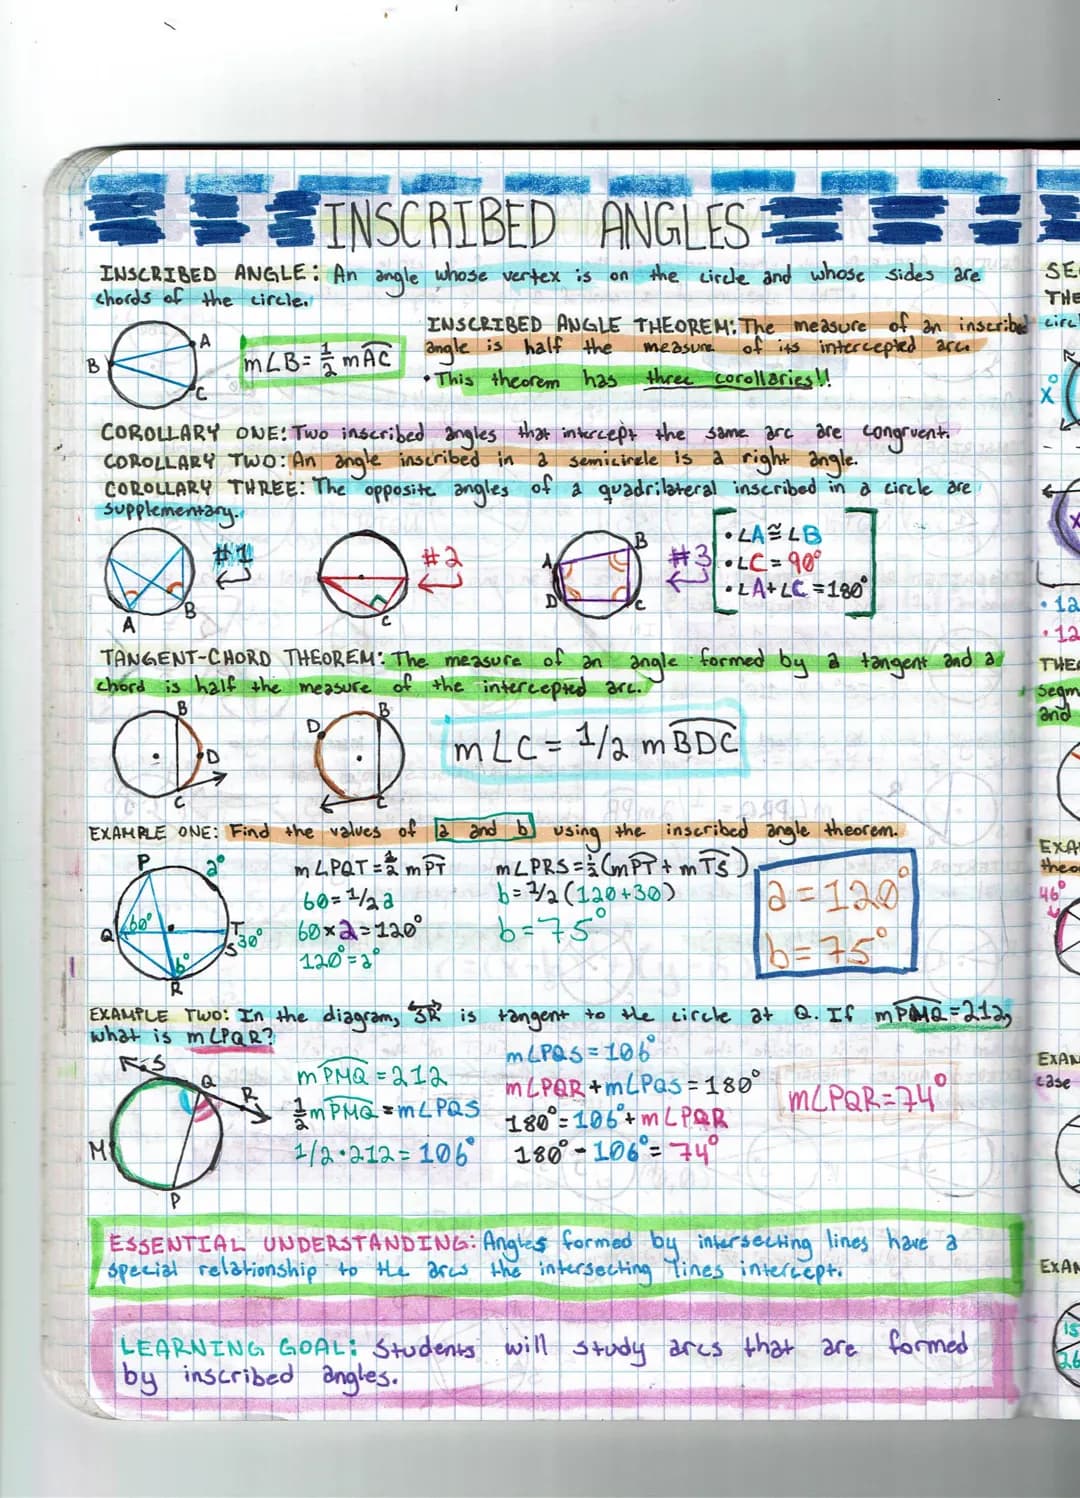 INSCRIBED ANGLES
INSCRIBED ANGLE: An angle whose vertex is on the circle and whose sides are
chords of the circle.
A
B
C
m∠B = 1/2 mAC
INSCRIBED ANGLE THEOREM: The measure of an inscribed
angle is half the measure of its intercepted arc.
• This theorem has three corollaries!!
COROLLARY ONE: Two inscribed angles that intercept the same arc are congruent.
COROLLARY TWO: An angle inscribed in a semicircle is a right angle.
COROLLARY THREE: The opposite angles of a quadrilateral inscribed in a circle are
supplementary.
A
B
#1
C
#2
A
B
C
D
#3
• ∠A ≅ ∠B
• ∠C = 90°
• ∠A + ∠C = 180°
TANGENT-CHORD THEOREM: The measure of an angle formed by a tangent and a
chord is half the measure of the intercepted arc.
B
D
C
B
D
C
m∠C = 1/2 mBDC
EXAMPLE ONE: Find the values of a and b using the inscribed angle theorem.
P
a°
Q
60°
T
S
30°
b°
R
m∠PQT = 1/2 mPT
60 = 1/2 a
60 x 2 = 120°
120° = a°
m∠PRS = 1/2 (mPT + mTS)
b = 1/2 (120 + 30)
b = 75°
a = 120°
b = 75°
EXAMPLE TWO: In the diagram, SR is tangent to the circle at Q. If mPMQ = 212,
what is m∠PQR?
S
Q
R
M
P
mPMQ = 212
1/2 mPMQ = m∠PQS
1/2 · 212 = 106°
m∠PQS = 106°
m∠PQR + m∠PQS = 180°
180° = 106° + m∠PQR
180° - 106° = 74°
m∠PQR = 74°
ESSENTIAL UNDERSTANDING: Angles formed by intersecting lines have a
special relationship to the arcs the intersecting lines intercept.
LEARNING GOAL: Students will study arcs that are formed
by inscribed angles.
THE
circ
x°
• 12
• 12
segm
and
theo
46°
case